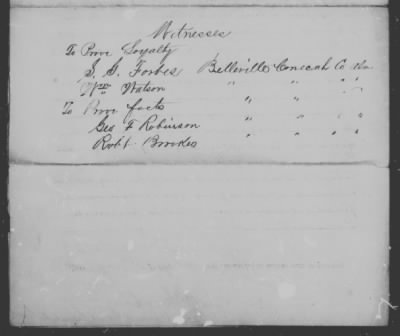 Witnesses
To Prove Loyalty
S. G. Forbes Belleville Conecuh Co Ala
Wm Watson " " " "
To Prove facts
Geo F Robinson " " " "
Robt Brooks " " " "